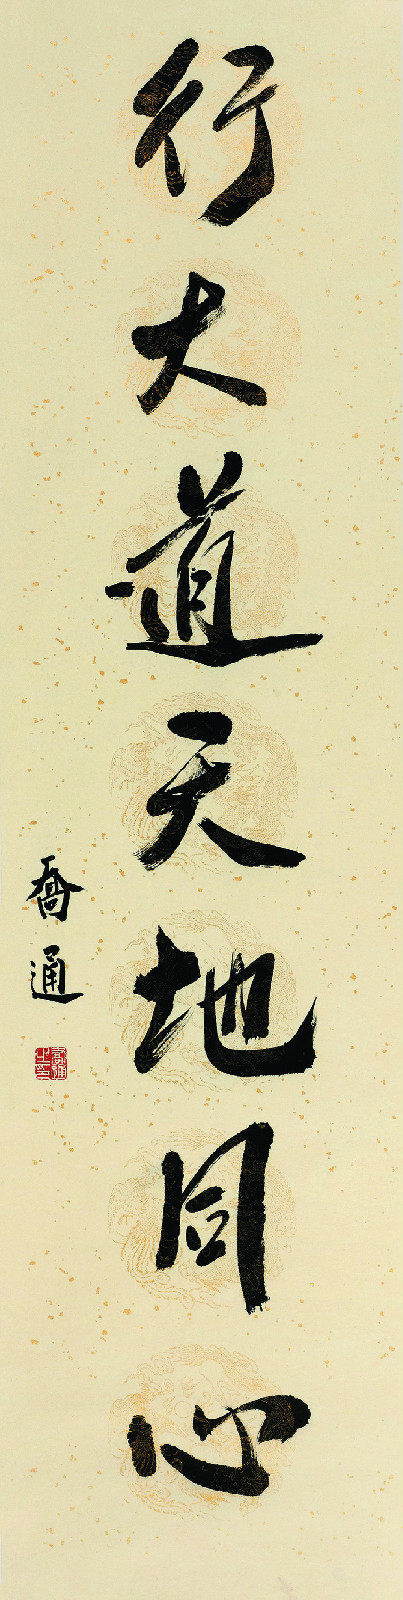 行大道天地同心
喬通